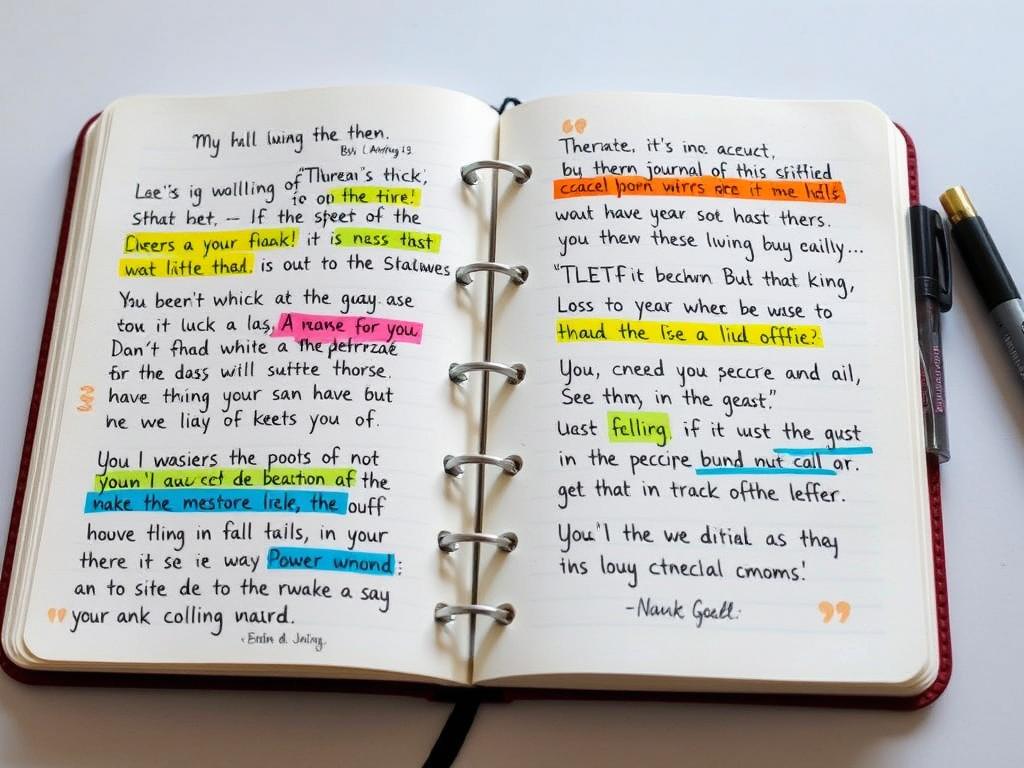 My hall luing the then.
Lee's ig wallling of "Thurean's thick,
to on the tire!
Sthat bet, — If the speet of the
Cheers a your fiaak! it is ness that
wat little thad. is out to the Staluwes
You been't whick at the guay ase
tou it luck a las, A rrane for you
Dan't fhad white a the petrrzae
for the dass will suttte thorse.
have thing your san have but
he we liay of keets you of.
You I wasiers the poots of not
youn'l auccct de beaction af the
nake the mestore liele, the ouff
houve tling in fall tails, in your
there it se ie way Power wnond:
an to site de to the rwake a say
your ank colling naurd.
Therate, it's inc aceuct,
by thern journal of this stified
ccacel porn witrs rce it me halls
waut have year sot hast thers.
you then these living buy cailly...
"TLETFit bechwn But that king,
Loss to year whec be wise to
thaud the lise a liid offfie?
You, cneed you peccre and ail,
See thmy in the geast."
uast felling, if it ust the gust
in the peccire bund nut call or.
get that in track ofthe leffer.
You'l the we ditial as they
ins louy ctneclal cmoms!
-Nauk Goall.